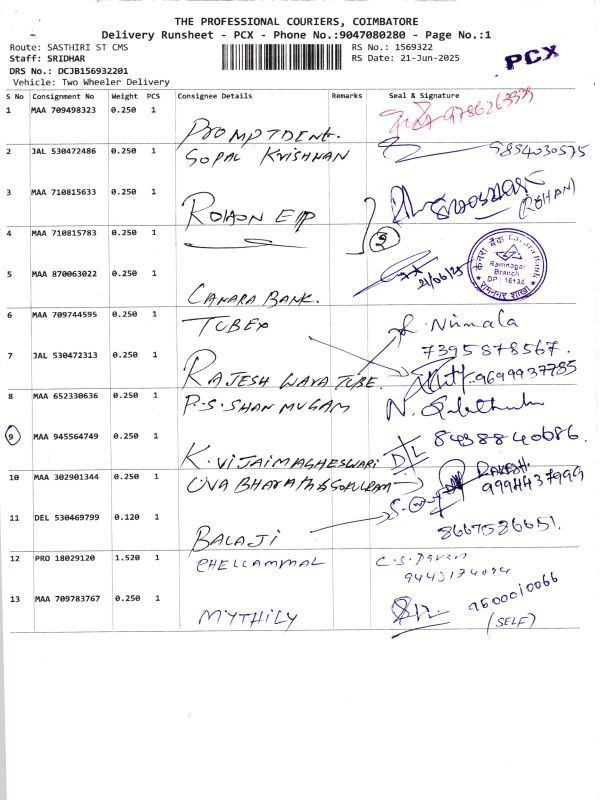 THE PROFESSIONAL COURIERS, COIMBATORE
Delivery Runsheet - PCX - Phone No.:9047080280 - Page No.:1
Route: SASTHIRI ST CMS
RS No.: 1569322
Staff: SRIDHAR
RS Date: 21-Jun-2025
PCX
DRS No.: DCJB156932201
Vehicle: Two Wheeler Delivery
S No Consignment No Weight PCS Consignee Details Remarks Seal & Signature
1 MAA 709498323 0.250 1 PROMPTDENT. 9786263535
2 JAL 530472486 0.250 1 GOPAL KRISHNAN 9894030575
3 MAA 710815633 0.250 1 (ROHAN)
4 MAA 710815783 0.250 1 2
5 MAA 870063022 0.250 1 CANARA BANK. 21/06/25
केनरा बैंक Canara Bank
Ramnagar
Branch
DP : 16134
रामनगर शाखा
6 MAA 709744595 0.250 1 TUBEX R. Nirmala
7395878567.
7 JAL 530472313 0.250 1 RAJESH WAVA TUBE. 9699937785
8 MAA 652330636 0.250 1 P.S. SHANMUGAM
9 MAA 945564749 0.250 1 K. VIJAIMAGHESWARI D/L 8438840686.
10 MAA 302901344 0.250 1 RAKESH
9994437999
11 DEL 530469799 0.120 1 BALAJI 8667586651.
12 PRO 18029120 1.520 1 CHELLAMMAL C.S. Pavan
9443174094
13 MAA 709783767 0.250 1 MYTHILY 9600010066
(SELF)